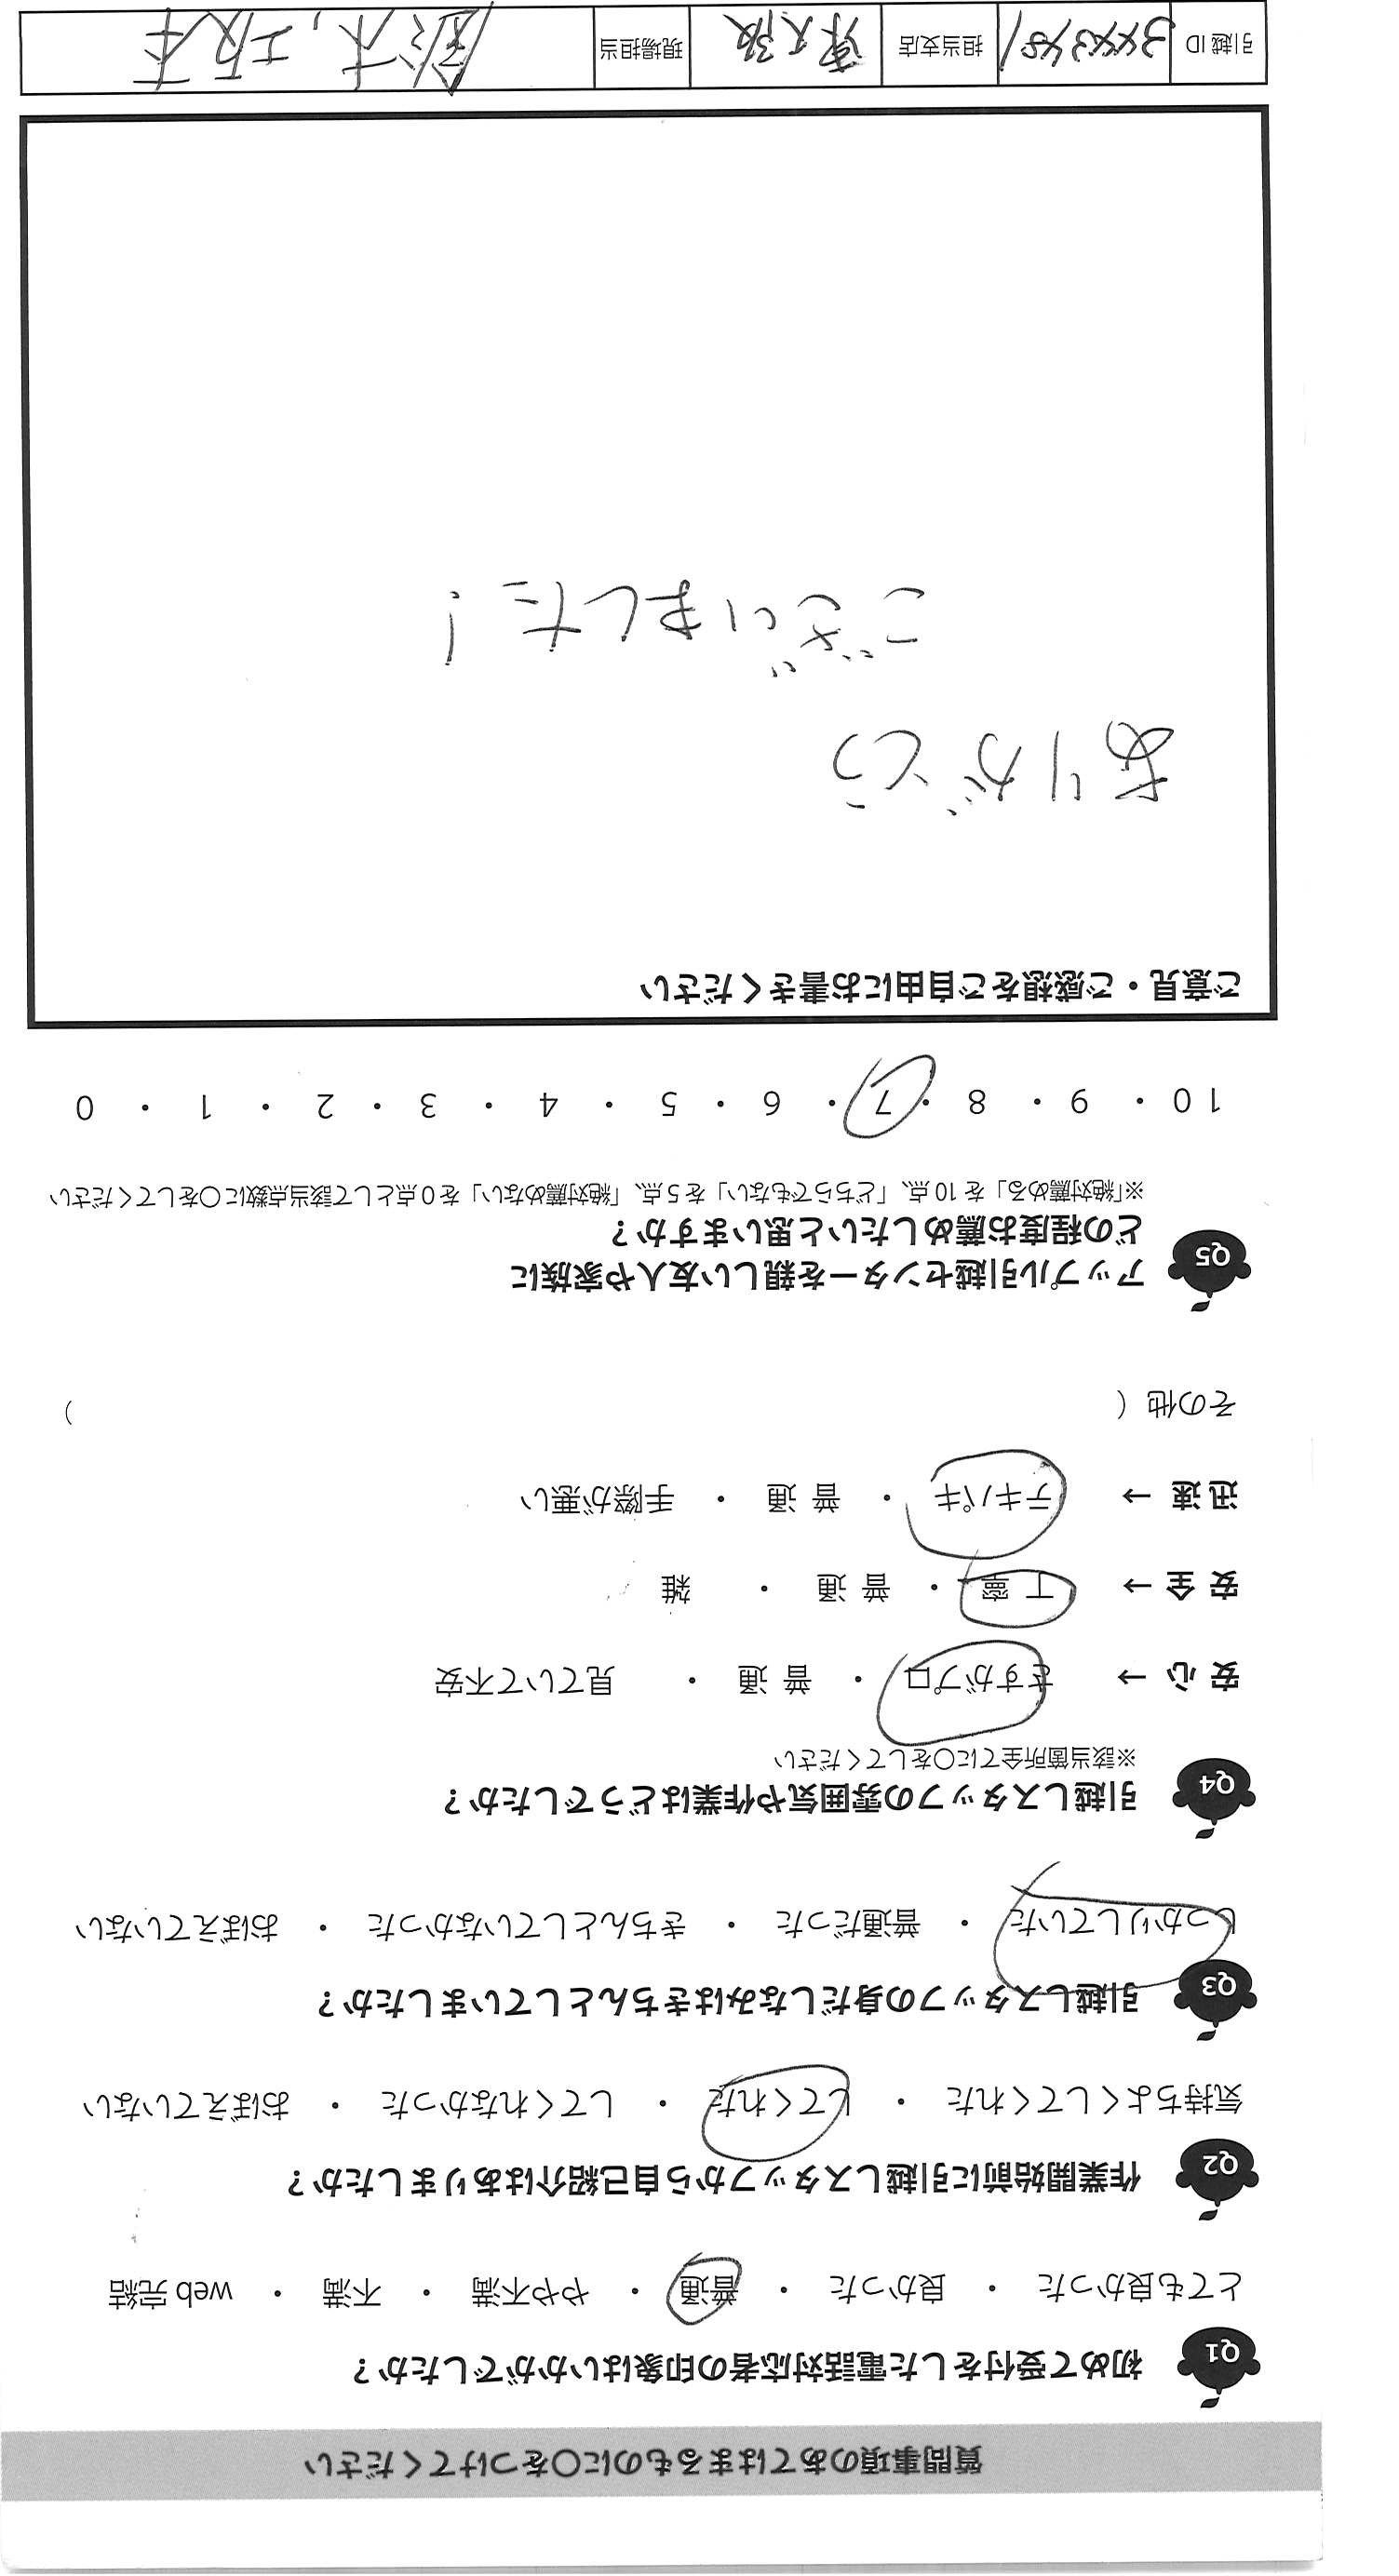 質問事項のあてはまるものに〇をつけてください
Q1 初めて受付をした電話対応者の印象はいかがでしたか？
とても良かった ・ 良かった ・ 普通 ・ やや不満 ・ 不満 ・ web 完結
Q2 作業開始前に引越しスタッフから自己紹介はありましたか？
気持ちよくしてくれた ・ してくれた ・ してくれなかった ・ おぼえていない
Q3 引越しスタッフの身だしなみはきちんとしていましたか？
しっかりしていた ・ 普通だった ・ きちんとしていなかった ・ おぼえていない
Q4 引越しスタッフの雰囲気や作業はどうでしたか？
※該当箇所全てに〇をしてください
安 心 → さすがプロ ・ 普 通 ・ 見ていて不安
安 全 → 丁 寧 ・ 普 通 ・ 雑
迅 速 → テキパキ ・ 普 通 ・ 手際が悪い
その他（ ）
Q5 アップル引越センターを親しい友人や家族に
どの程度お薦めしたいと思いますか？
※「絶対薦める」を 10 点、「どちらでもない」を 5 点、「絶対薦めない」を 0 点として該当点数に〇をしてください
10 ・ 9 ・ 8 ・ 7 ・ 6 ・ 5 ・ 4 ・ 3 ・ 2 ・ 1 ・ 0
ご意見・ご感想をご自由にお書きください
ありがとう
ございました！
引越 ID 担当支店 東大阪 現場担当 鈴木, 坂本